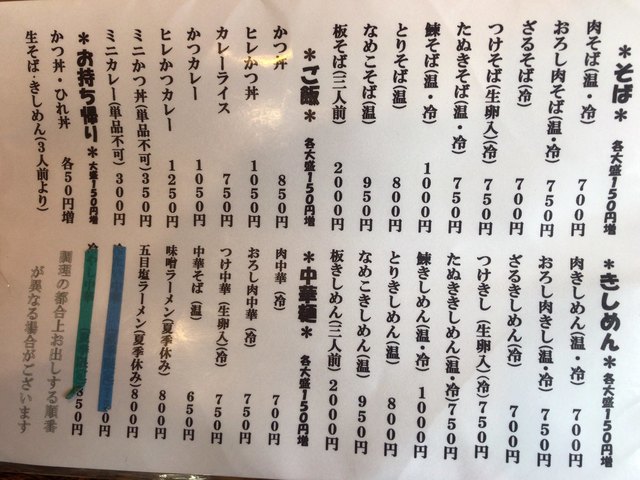 *そば* 各大盛150円増
肉そば(温・冷) 700円
おろし肉そば(温・冷) 750円
ざるそば(冷) 700円
つけそば(生卵入)(冷) 750円
たぬきそば(温・冷) 750円
鰊そば(温・冷) 1000円
とりそば(温) 800円
なめこそば(温) 950円
板そば(二人前) 2000円
*ご飯* 各大盛150円増
かつ丼 850円
ヒレかつ丼 1050円
カレーライス 750円
かつカレー 1050円
ヒレかつカレー 1250円
ミニかつ丼(単品不可)350円
ミニカレー(単品不可)300円
*お持ち帰り* 大盛150円増
かつ丼・ひれ丼 各50円増
生そば・きしめん(3人前より)
*きしめん* 各大盛150円増
肉きしめん(温・冷) 700円
おろし肉きし(温・冷) 750円
ざるきしめん(冷) 700円
つけきし(生卵入)(冷)750円
たぬききしめん(温・冷)750円
鰊きしめん(温・冷) 1000円
とりきしめん(温) 800円
なめこきしめん(温) 950円
板きしめん(二人前)2000円
*中華麺* 各大盛150円増
肉中華(冷) 700円
おろし肉中華(冷) 750円
つけ中華(生卵入)(冷) 750円
中華そば(温) 650円
味噌ラーメン(夏季休み) 800円
五目塩ラーメン(夏季休み)800円
冷
冷 中華 350円
調理の都合上お出しする順番
が異なる場合がございます